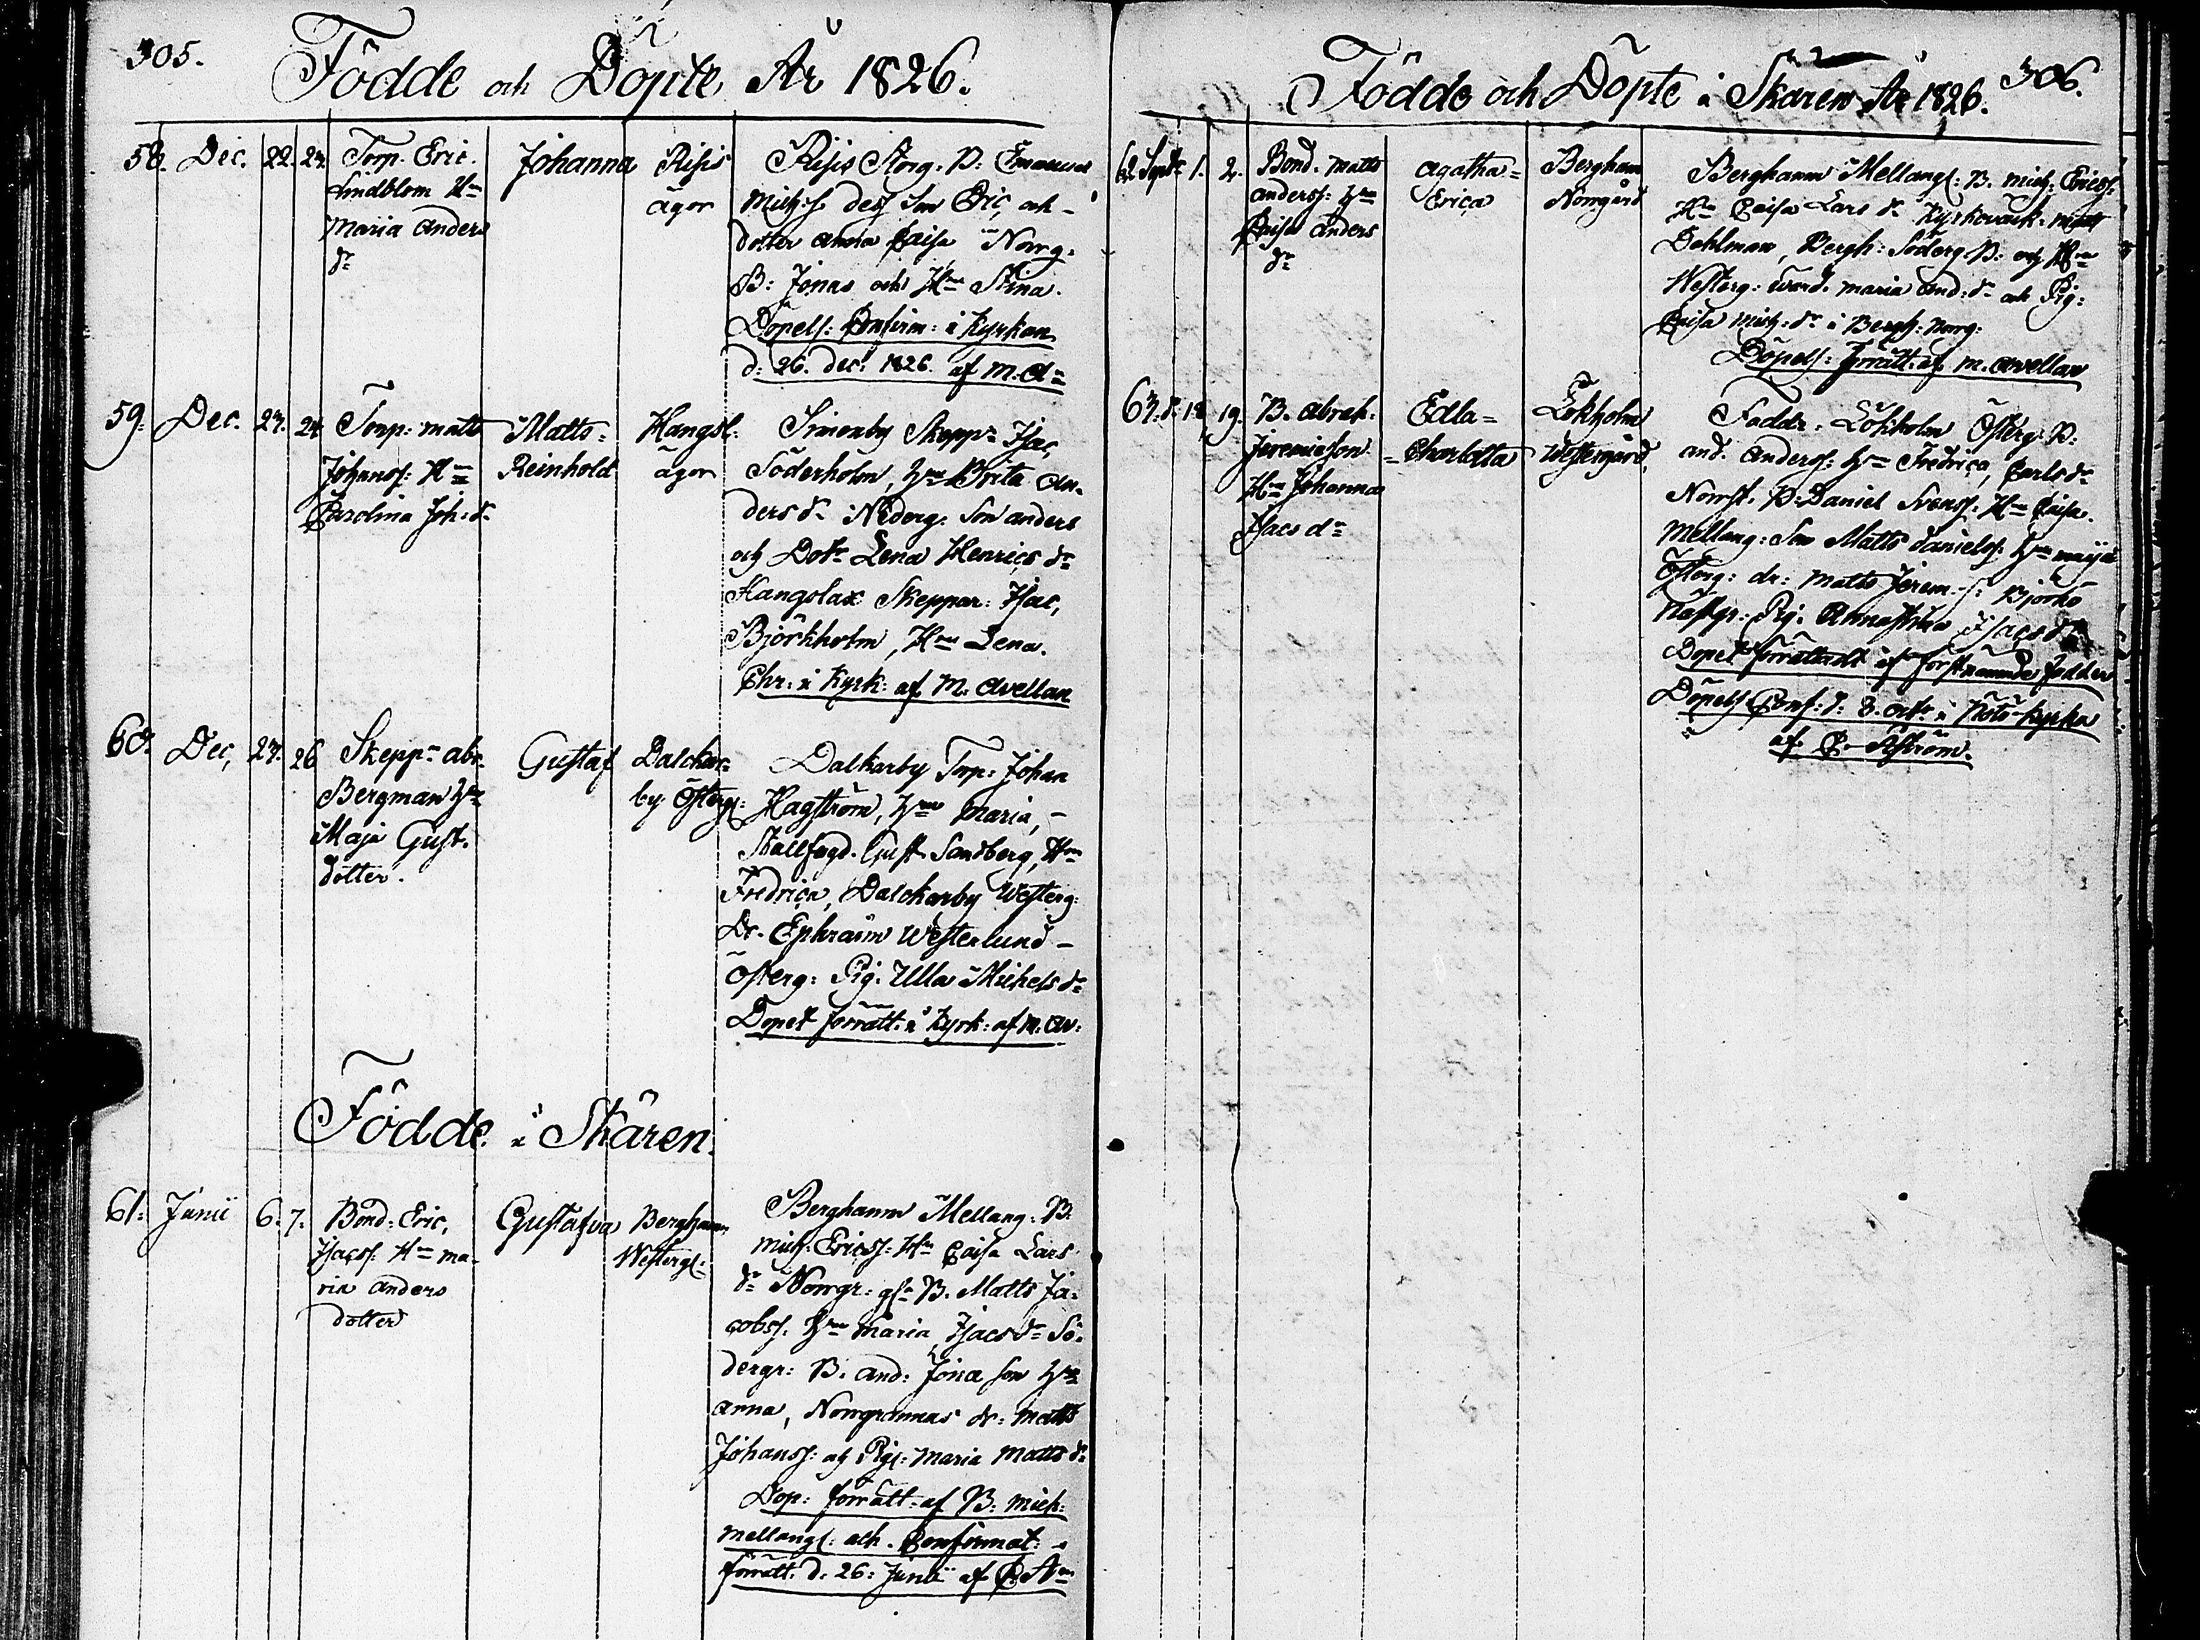 305.
Födde och Döpte År 1826.
58. Dec. 22. 24. Torp. Eric. Lindblom Hu Maria Anders dr
Johanna
Risis ägor
Risis Storg. B: Emanuel
Mich:s des son Eric, och
dotter Anna Caisa Norrg.
B: Jonas och Hu Stina.
Döpels: Confirm: i Kyrkan
d: 26. dec: 1826. af M. A:
59. Dec. 23. 24 Torp: Matts Johanss: Hu Carolina Joh: dr
Matts Reinhold
Hangsl: ägor
Simonby Skeppr Isac,
Söderholm, hu Brita An-
ders dr Nederg. Son Anders
och Dotr Lena Henrics dr
Hangslax Skeppar: Isac,
Björkholm, Hu Lena.
Chr. i Kyrk: af M. Avellan
60. Dec, 23. 26 Skeppr Abr. Bergman hu Maja Gust. dotter.
Gustaf
Dalckar- by Österg:
Dalkarby Torp: Johan
Hagström, hu Maria, –
Stallfogd. Gust. Sandberg, Hu
Fredrica, Dalckarby Westerg:
Dr. Ephraim Westerlund –
Österg: Pig. Ulla Michels dr
Dopet förrätt: i Kyrk: af M. Av:
Födde i Skären.
61. Junii 6. 7. Bond: Eric, Isacss: Hu Ma- ria Anders dotter
Gustafva
Berghamn Westerg:
Berghamn Mellang: B.
Mich: Ericss: Hu Caisa Lars
dr Norrgr: B. Matts Ja-
cobss. hu Maria Isacs dr Sö-
dergr: B. And: Jona son hu
Anna, Norrgrannas dr: Matts
Johanss: och Pig: Maria Matts dr
Dop: förrätt: af B: Mich:
Mellang: och Confirmat:
förrätt. d. 26: Junii af
Födde och Döpte i Skären År 1826. 306.
62. Septr 1. 2. Bond. Matts Anderss: hu Caisa Anders dr
Agatha= Erica
Berghamn Norrgård
Berghamn Mellang: B. Mich: Ericss:
Hu Caisa Lars dr Kyrkovärk: Matts
Dahlman, Bergh: Söderg. B: och Hu
Westerg: Värd. Maria And: dr och Pig:
Caisa Mich: dr i Bergh: Norrg:
Döpels: förrätt. af M. Avellan
63. d. 18 19. B. Abrah. Jeremiesson Hu Johanna Isacs dr
Edla= Charlotta
Lökholm Westergård.
Faddr. Lökholm Österg. B.
And. Anderss: hu Fredrica, Carls dr
B. Daniel Svenss: Hu Caisa.
Mellang: Son Matts Daniels: hu Maija
Österg: dr: Matts Jerem: s: Björkö
Pig. Isacs dr
Dopet förrättadt af förstnämnde fadder
Döpels Conf: d: 8. Octr i Nötö-Kyrka
af C. Åström.